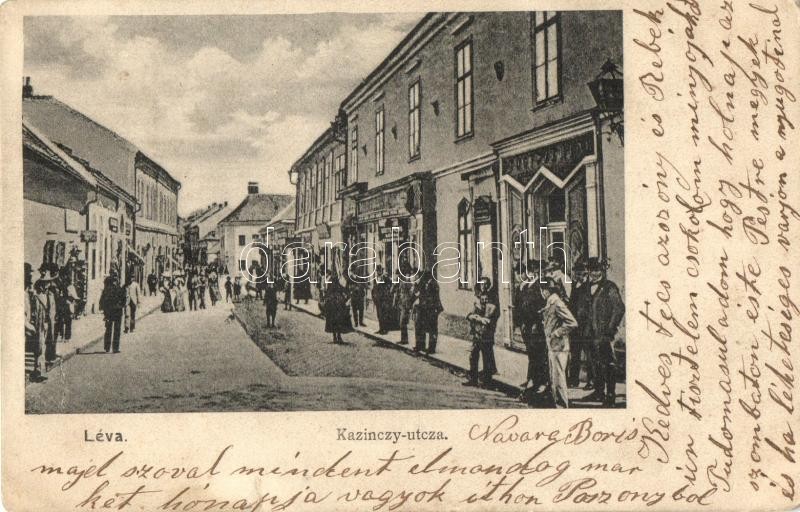 Léva.
Kazinczy-utcza.
Navara Boris
Kedves Tecs aszony és Rebek
én tisztelem csokolom minyájokat
Tudomasul adom hogy holnap az
szombaton este Pestre megyek
és ha lehetséges varjon a nyugotinal
majd szoval mindent elmondog mar
két hónapja vagyok ithon Poszonybol
darabanth